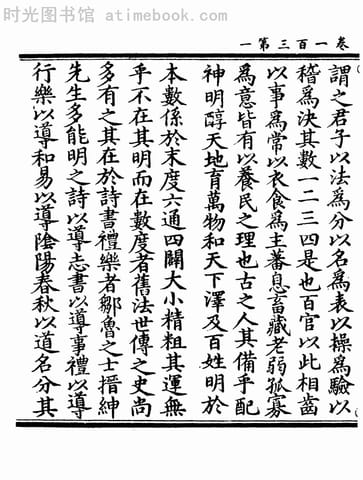 时光图书馆 atimebook.com
一第三百一卷
謂之君子以法為分以名為表以操為驗以
稽為決其數一二三四是也百官以此相齒
以事為常以衣食為主蕃息畜藏老弱孤寡
為意皆有以養民之理也古之人其備乎配
神明醇天地育萬物和天下澤及百姓明於
本數係於末度六通四闢大小精粗其運無
乎不在其明而在數度者舊法世傳之史尚
多有之其在於詩書禮樂者鄒魯之士搢紳
先生多能明之詩以導志書以導事禮以導
行樂以導和易以導陰陽春秋以道名分其